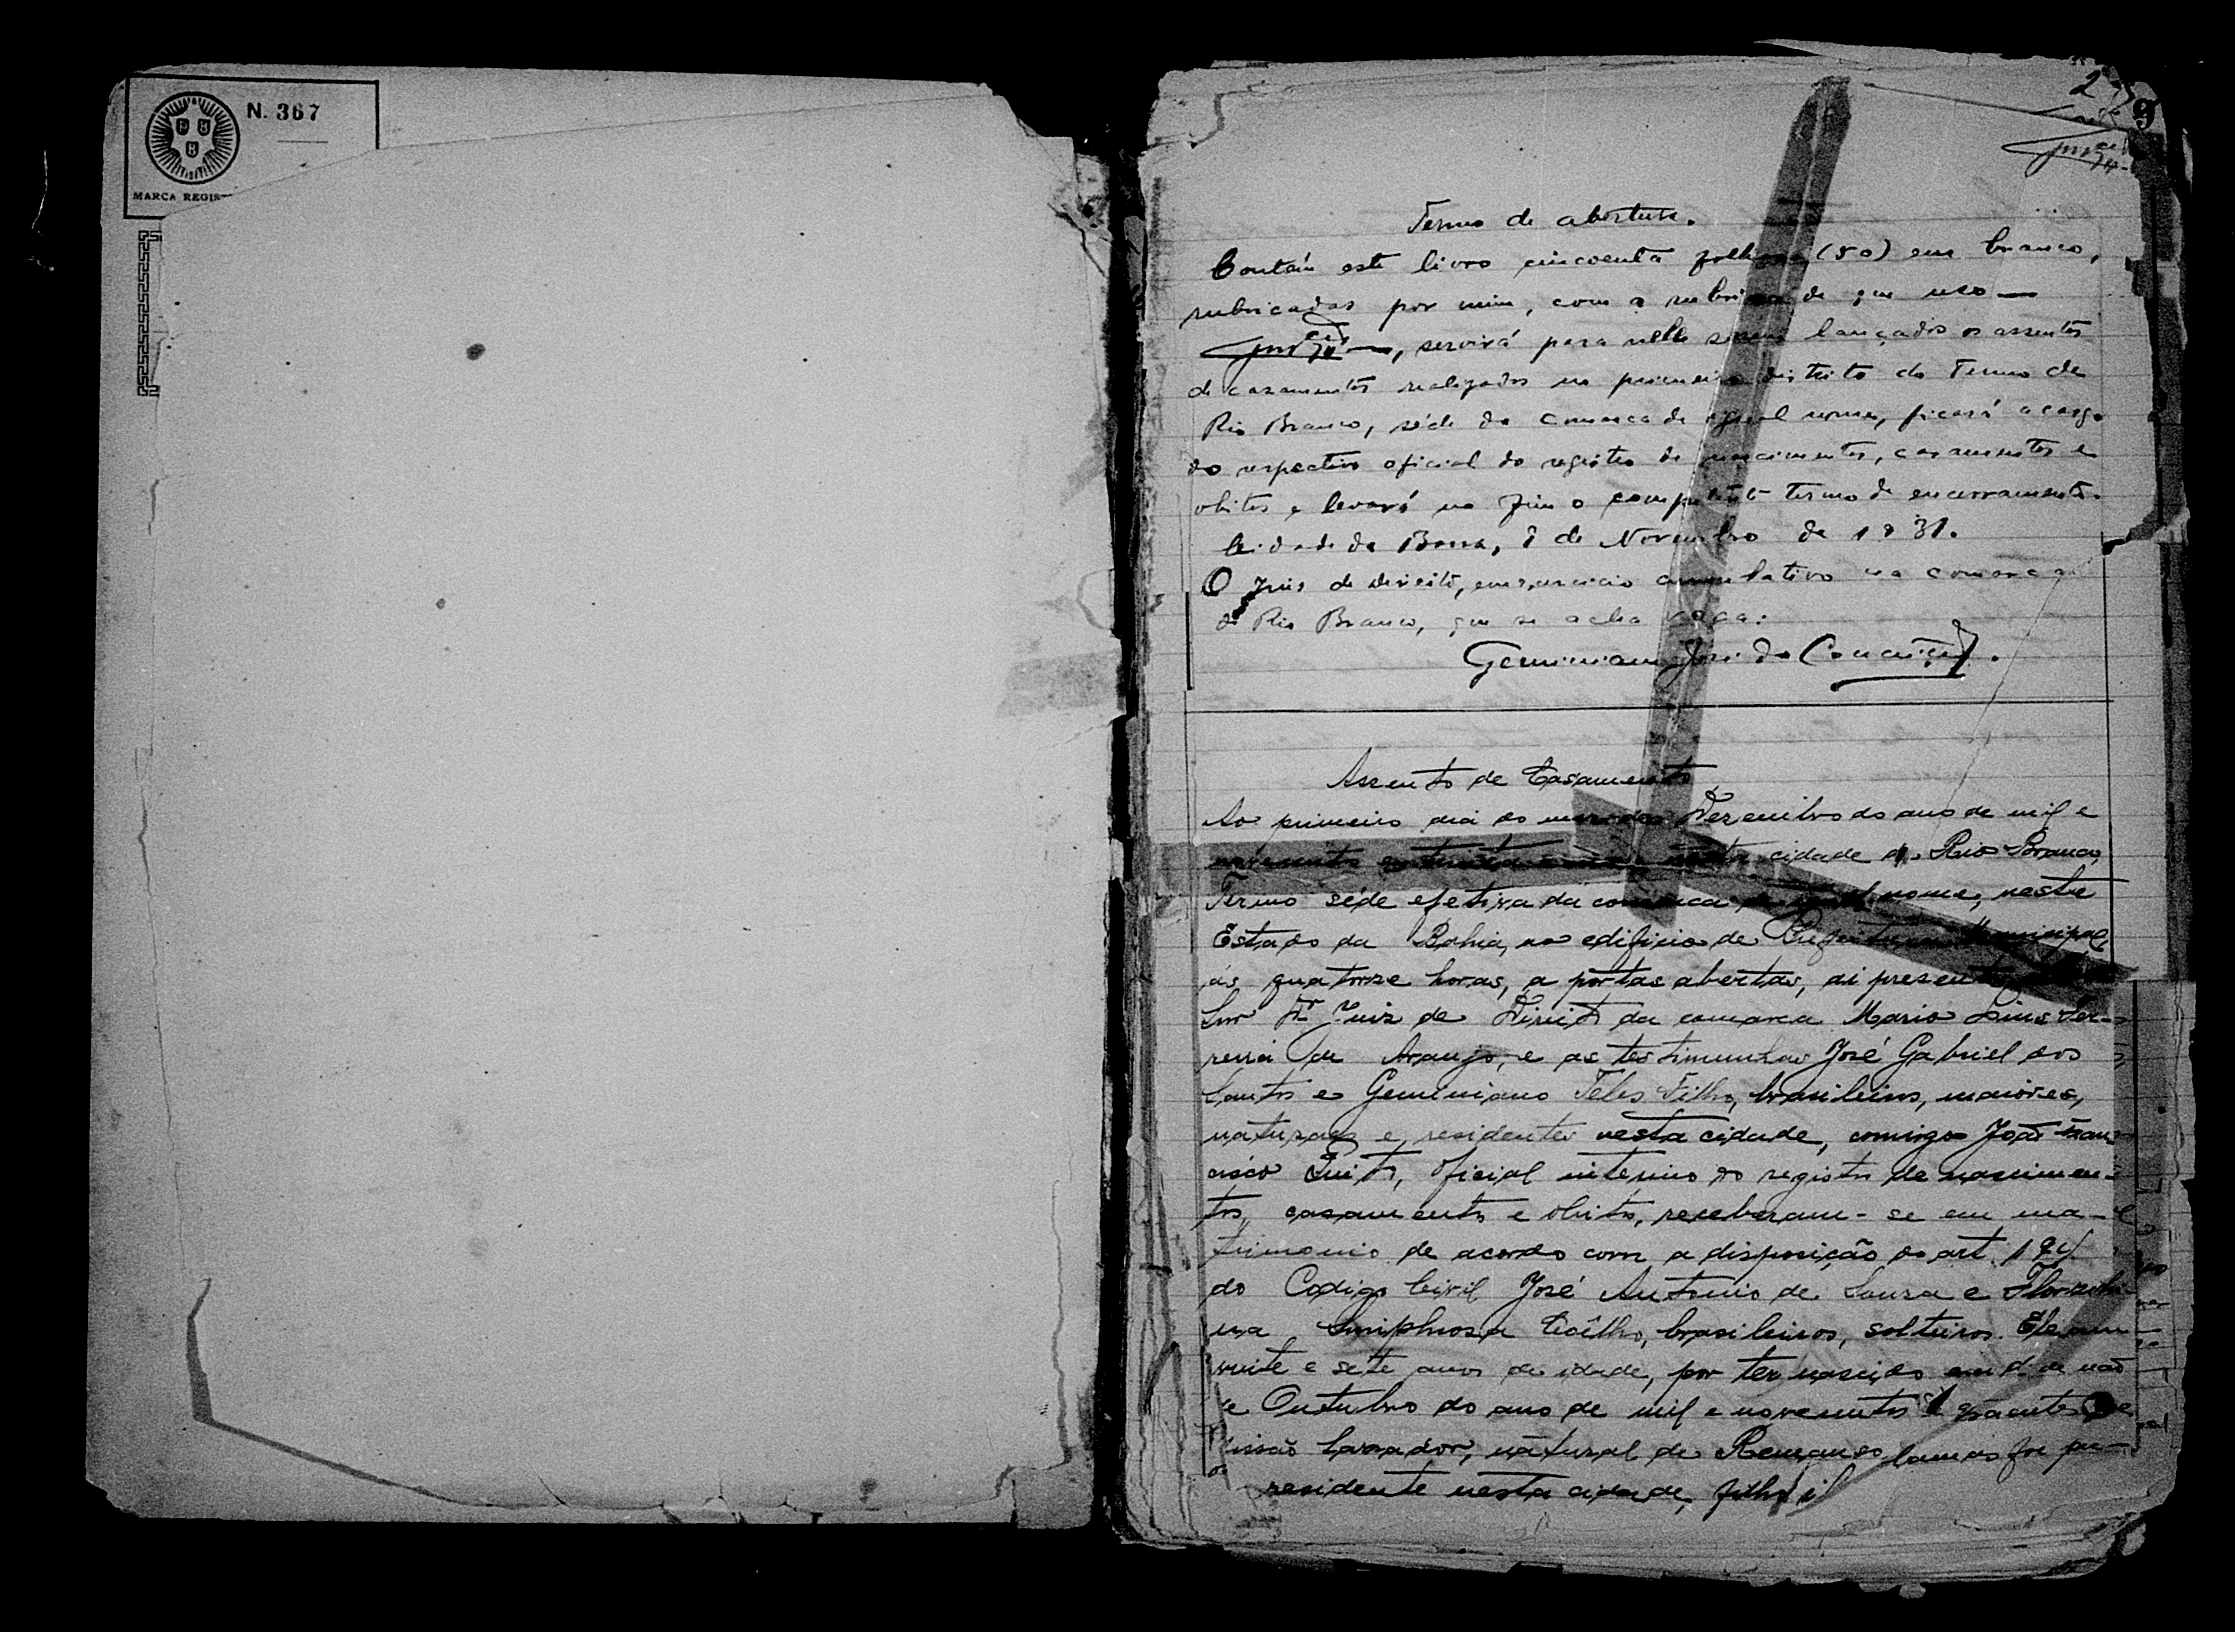 N. 367
MARCA REGIS
2
9
Termo de abertura.
Contém este livro cincoenta folhas (50) em branco,
rubricadas por mim, com a rubrica de que uso —
, servirá para nelle serem lançados os assentos
de casamentos realizados no primeiro districto do Termo de
Rio Branco, séde da comarca de egual nome, ficará a cargo
do respectivo oficial do registro de nascimentos, casamentos e
obitos e levará no fim o competente termo de encerramento.
Cidade da Barra, 8 de Novembro de 1931.
O Juis de direito, em exercicio cumulativo na comarca
de Rio Branco, que se acha vaga:
Geminiano José da Conceição.
Assento de Casamento
Ao primeiro dia do mes de Dezembro do ano de mil e
novecentos e trinta nesta cidade de Rio Branco,
Termo séde efetiva da comarca de nome, neste
Estado da Bahia, no edificio da Prefeitura Municipal,
ás quatorze horas, a portas abertas, ai presente
Snr Dr Juiz de Direito da comarca Mario Lins Fer-
reira de Araujo, e as testimunhas José Gabriel dos
Santos e Geminiano Teles Filho, brasileiros, maiores,
naturaes e residentes nesta cidade, comigo João Fran-
cisco Leite, oficial interino do registro de nascimen-
tos, casamentos e obitos, receberam-se em ma-
trimonio de acordo com a disposição do art. 194
do Codigo Civil José Antonio de Souza e
na Coêlho, brasileiros, solteiros. Ele com
vinte e sete anos de idade, por ter nascido em
de Outubro do ano de mil e novecentos e quatro
lavrador, natural de Remanso
residente nesta cidade, filho